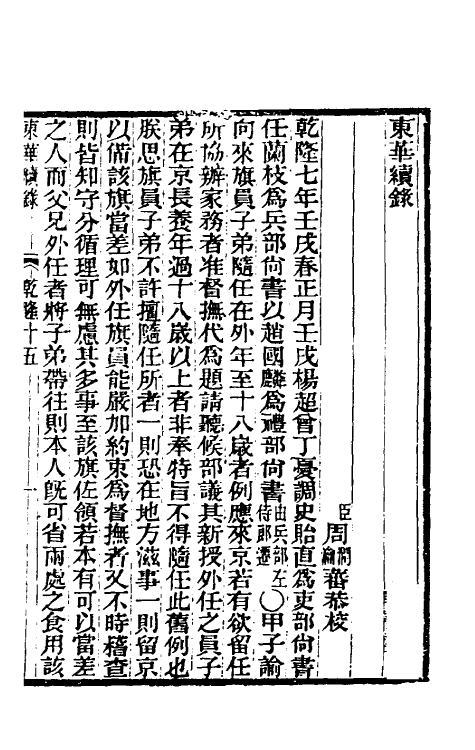 東華續錄
臣周潤蕃瀹蕃恭校
乾隆七年壬戌春正月壬戌楊超曾丁憂調史貽直爲吏部尙書
任蘭枝爲兵部尙書以趙國麟爲禮部尙書由兵部左侍郞遷〇甲子諭
向來旗員子弟隨任在外年至十八歲者例應來京若有欲留任
所協辦家務者准督撫代爲題請聽候部議其新授外任之員子
弟在京長養年過十八歲以上者非奉特旨不得隨任此舊例也
朕思旗員子弟不許擅隨任所者一則恐在地方滋事一則留京
以備該旗當差如外任旗員能嚴加約束爲督撫者又不時稽查
則皆知守分循理可無慮其多事至該旗佐領若本有可以當差
之人而父兄外任者將子弟帶往則本人旣可省兩處之食用該
東華續錄 乾隆十五 一